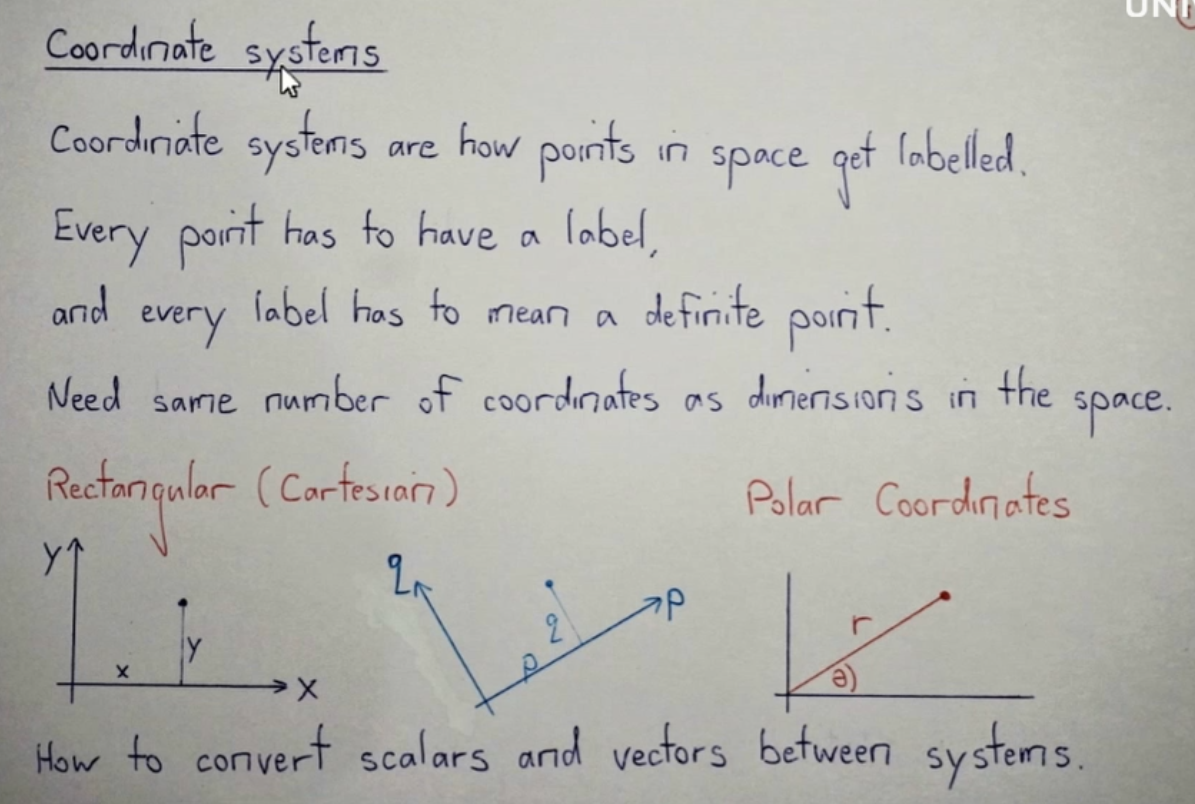 UNI
Coordinate systems
Coordinate systems are how points in space get labelled.
Every point has to have a label,
and every label has to mean a definite point.
Need same number of coordinates as dimensions in the space.
Rectangular (Cartesian)
Polar Coordinates
y
x
y
x
q
p
q
p
r
θ
How to convert scalars and vectors between systems.